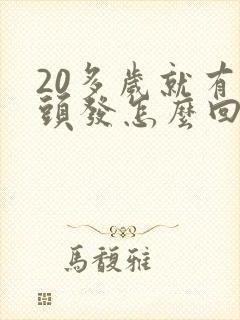 20多歲就有
頭發怎麼回
馬馥雅